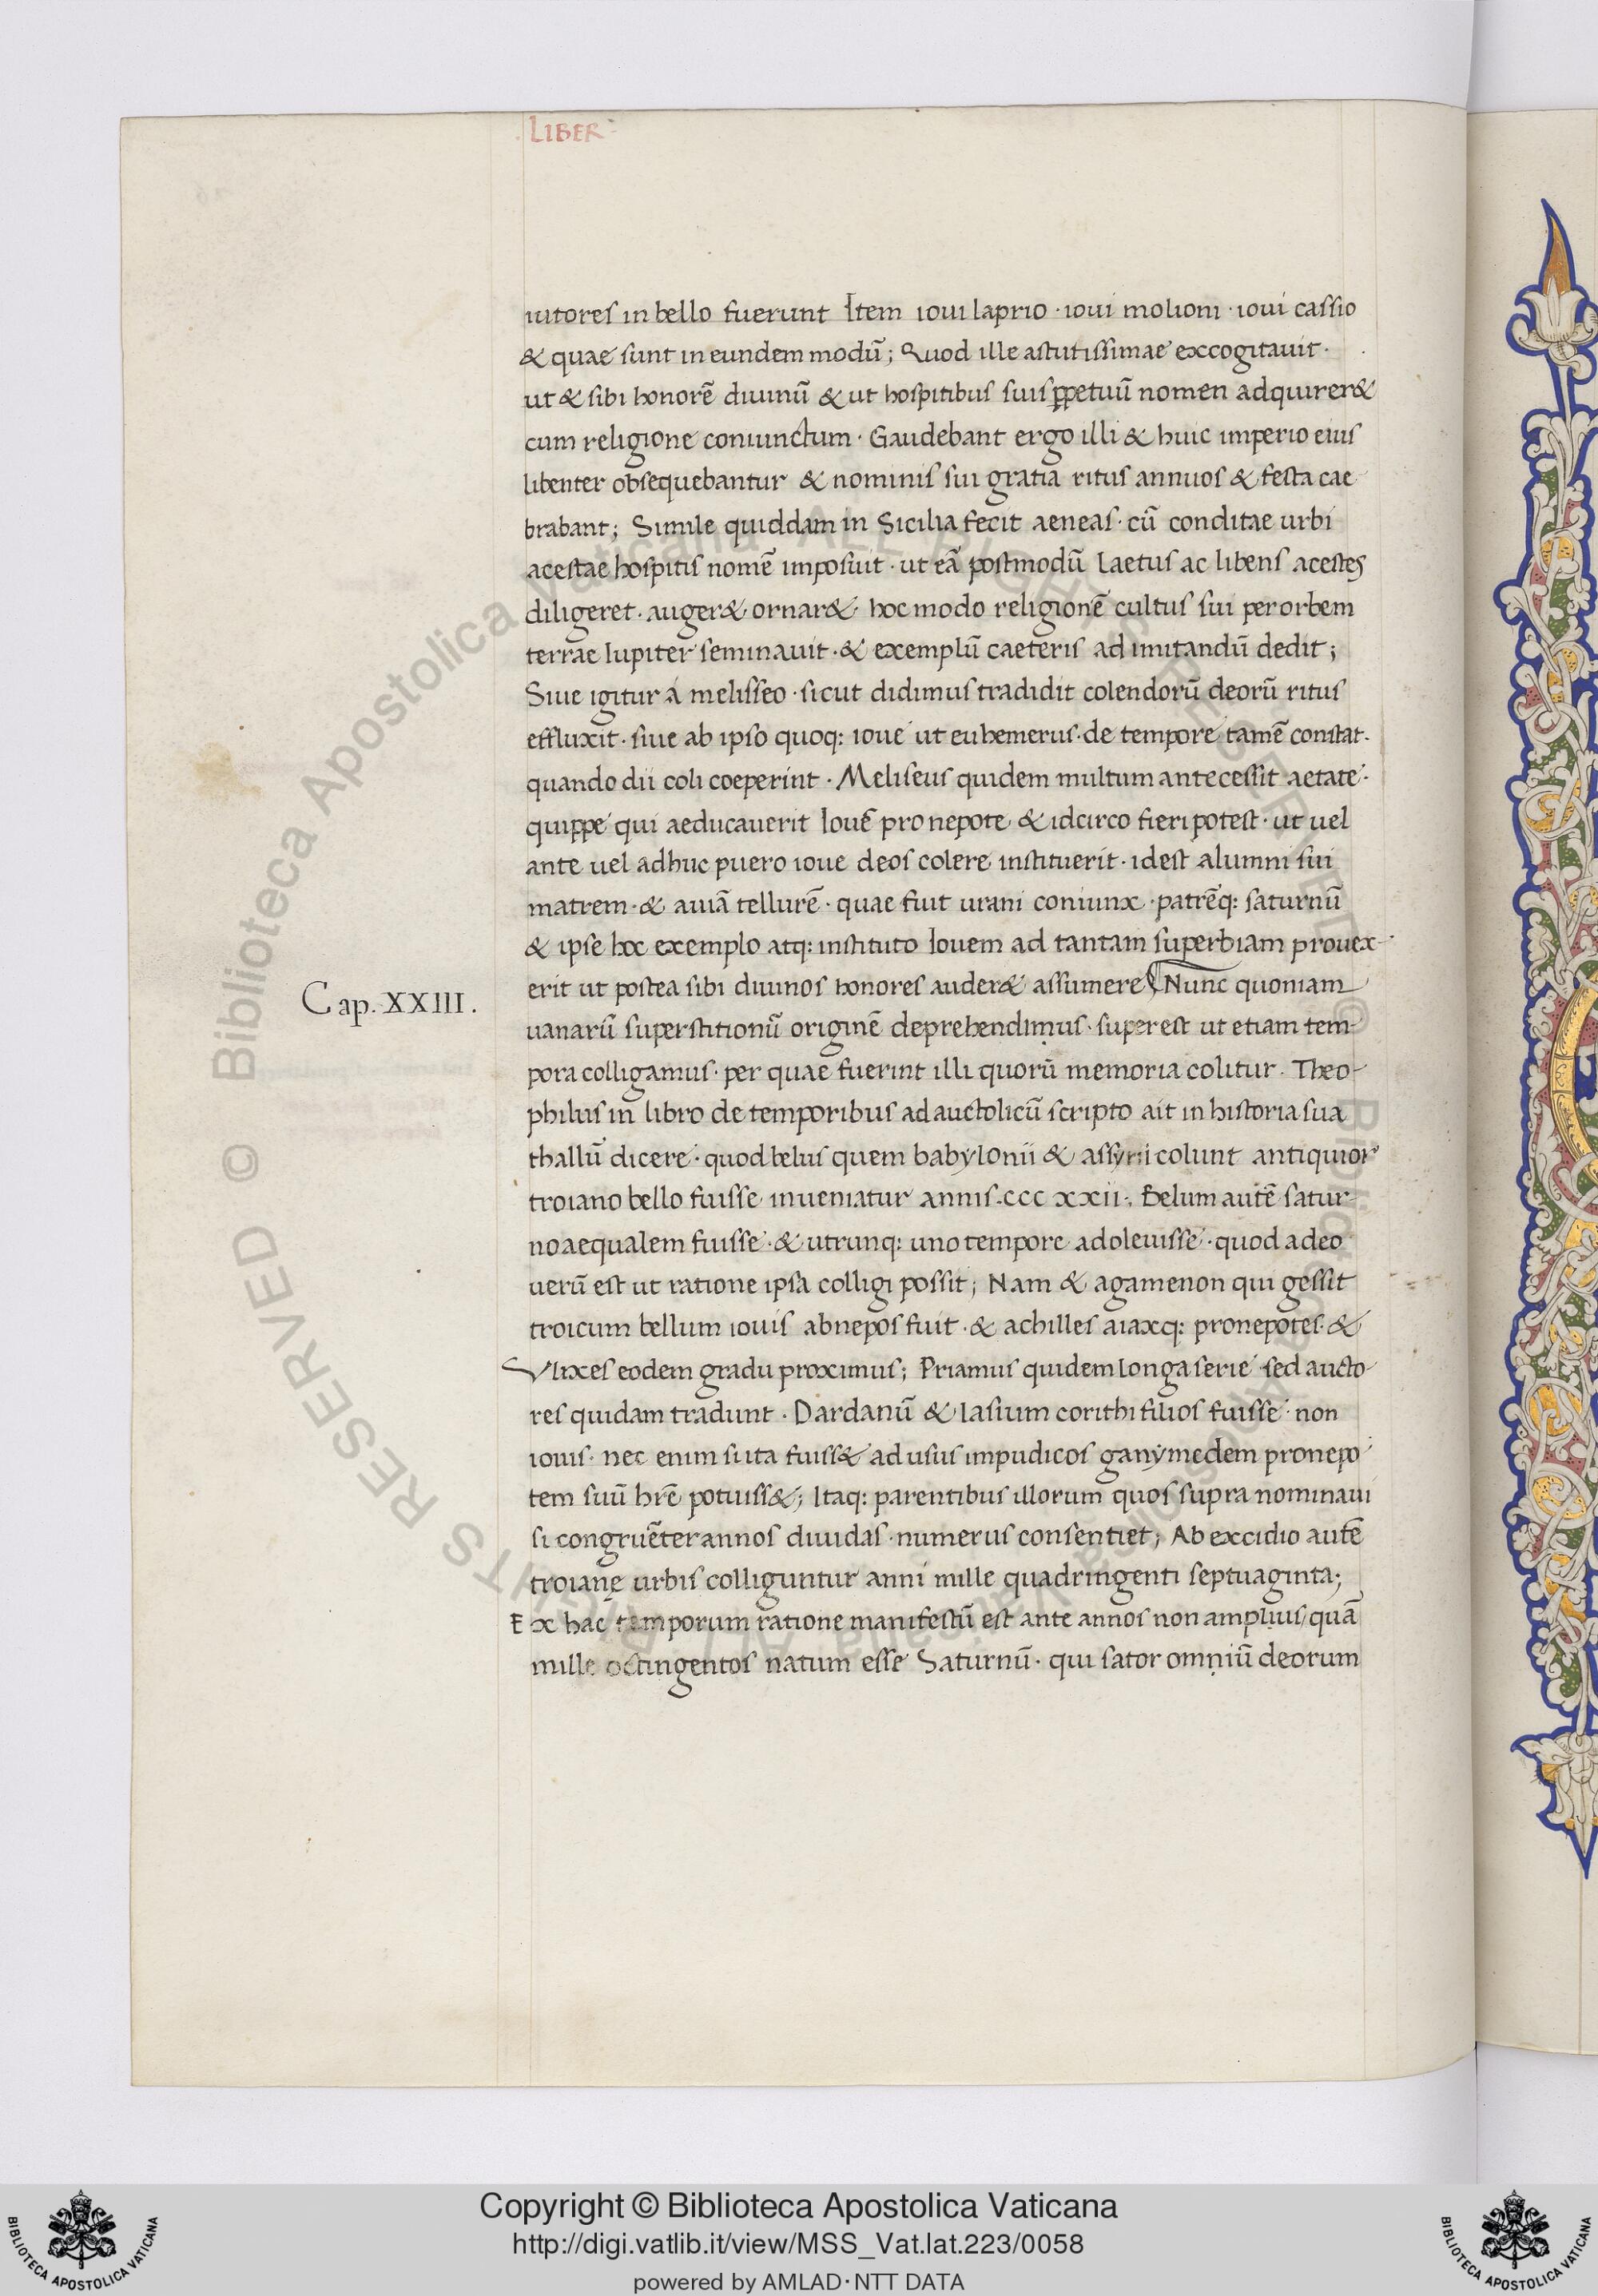 LIBER
iutores in bello fuerunt Item ioui laprio · ioui molioni · ioui cassio
& quae sunt in eundem modū; Quod ille astutissimae excogitauit ·
ut & sibi honorē diuinū & ut hospitibus suis ꝑpetuū nomen adquirer&
cum religione coniunctum · Gaudebant ergo illi & huic imperio eius
libenter obsequebantur & nominis sui gratia ritus annuos & festa cae
brabant; Simile quiddam in Sicilia fecit aeneas · cū conditae urbi
acestae hospitis nomē imposuit · ut eā postmodū laetus ac libens acestes
diligeret · auger& ornar& hoc modo religionē cultus sui per orbem
terrae Iupiter seminauit · & exemplū caeteris ad imitandū dedit;
Siue igitur a melisseo · sicut didimus tradidit colendorū deorū ritus
effluxit · siue ab ipso quoq: ioue ut euhemerus · de tempore tamē constat ·
quando dii coli coeperint · Meliseus quidem multum antecessit aetate ·
quippe qui aeducauerit Iouē pronepote & idcirco fieri potest · ut uel
ante uel adhuc puero ioue deos colere instituerit · idest alumni sui
matrem · & auiā tellurē · quae fuit urani coniunx · patrēq: saturnū
& ipse hoc exemplo atq: instituto Iouem ad tantam superbiam prouex-
erit ut postea sibi diuinos honores auder& assumere Nunc quoniam
Cap. XXIII.
uanarū superstitionū originē deprehendimus · superest ut etiam tem-
pora colligamus · per quae fuerint illi quorū memoria colitur · Theo-
philus in libro de temporibus ad auctolicū scripto ait in historia sua
thallū dicere · quod belus quem babylonii & assyrii colunt antiquior
troiano bello fuisse inueniatur annis · CCC XXII · Belum autē satur-
no aequalem fuisse · & utrunq: uno tempore adoleuisse · quod adeo
uerū est ut ratione ipsa colligi possit; Nam & agamenon qui gessit
troicum bellum iouis abnepos fuit · & achilles aiaxq: pronepotes · &
Vlixes eodem gradu proximus; Priamus quidem longa serie sed aucto-
res quidam tradunt · Dardanū & Iasium corithi filios fuisse · non
iouis · nec enim si ita fuiss& ad usus impudicos ganymedem pronepo-
tem suū hr̄e potuiss&; Itaq: parentibus illorum quos supra nominaui
si congruēter annos diuidas · numerus consentiet; Ab excidio autē
troianę urbis colliguntur anni mille quadringenti septuaginta;
Ex hac temporum ratione manifestū est ante annos non amplius quā
mille octingentos natum esse Saturnū · qui sator omniū deorum
© Biblioteca Apostolica Vaticana ALL RIGHTS RESERVED
Copyright © Biblioteca Apostolica Vaticana
http://digi.vatlib.it/view/MSS_Vat.lat.223/0058
powered by AMLAD·NTT DATA
BIBLIOTECA APOSTOLICA VATICANA
BIBLIOTECA APOSTOLICA VATICANA